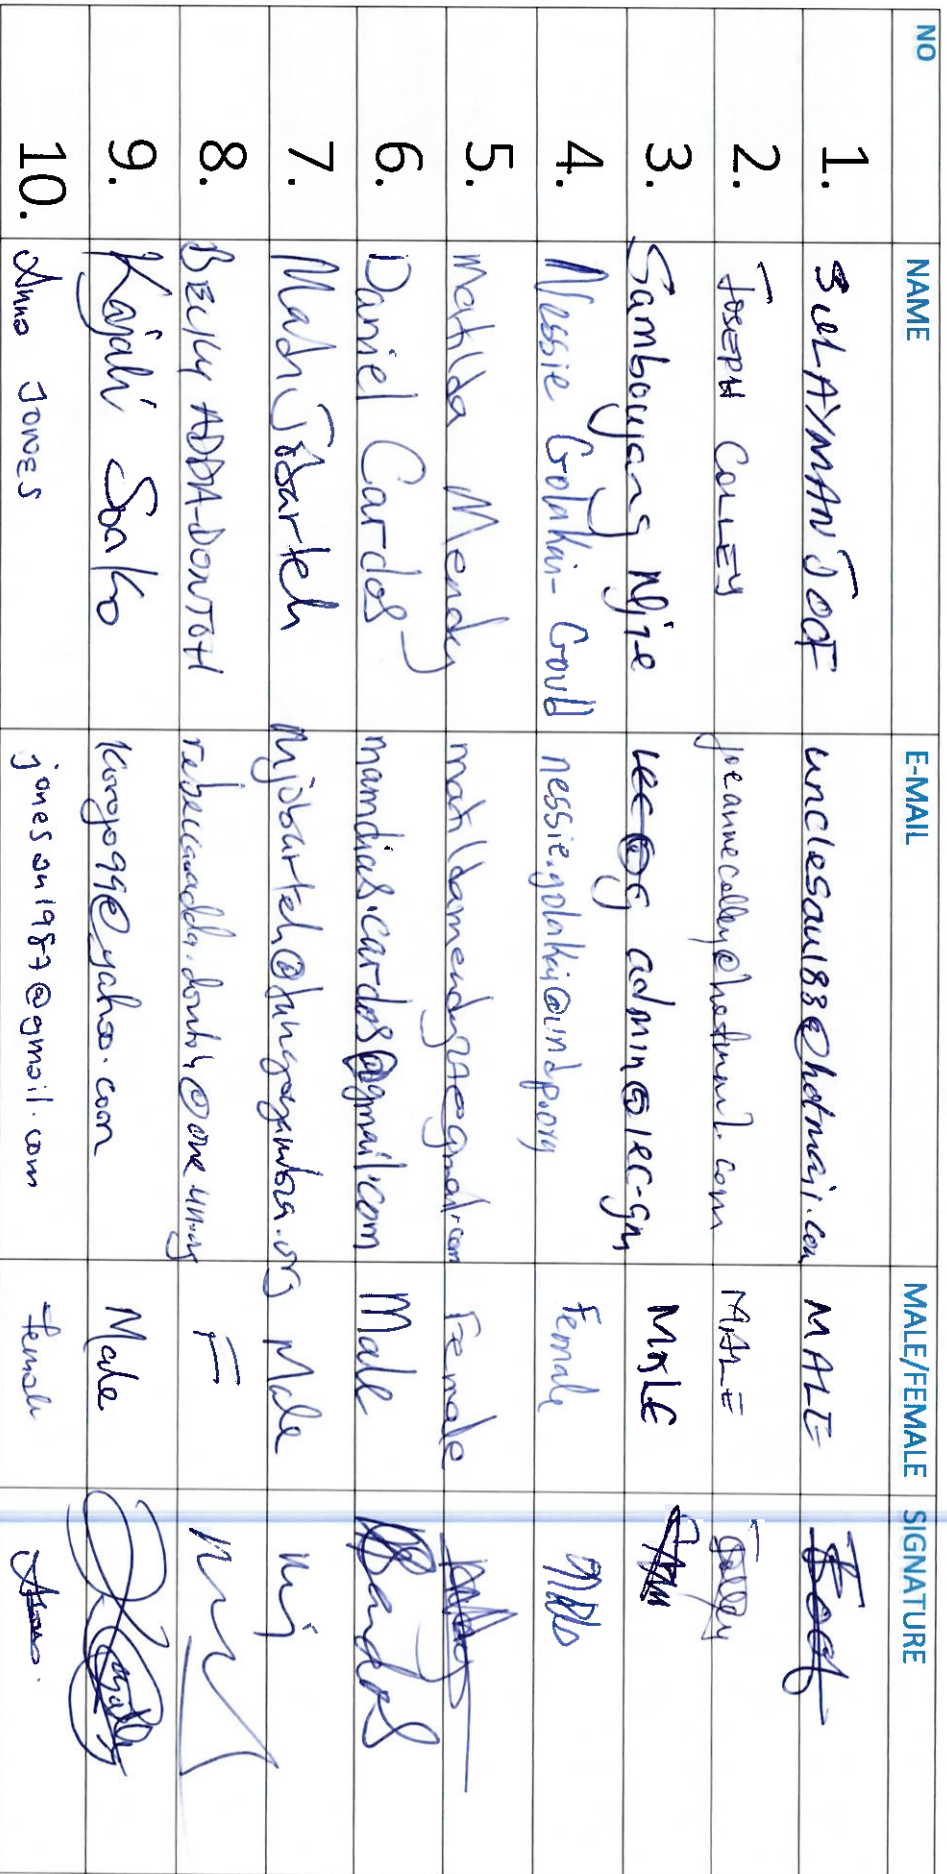 NO NAME E-MAIL MALE/FEMALE SIGNATURE
1. SULAYMAN JOOF unclesaul88@hotmail.com MALE Joof
2. JOSEPH COLLEY joeannecolley@hotmail.com MALE Jolley
3. Sambouyang Njie admin@iec-gm MALE
4. Nessie Golakai-Gould nessie.golakai@undp.org Female
5. Matilda Mendy Female
6. Daniel Cardos mamdias.cardos@gmail.com Male Cardos
7. Madi Jobarteh mjobarteh@tangogambia.org Male mj
8. BECKY ADDA-DONTOH rebecca.adda-dontoh@one.un.org F
9. Kajali Sonko korojo99@yahoo.com Male
10. Anna JONES jonesan1987@gmail.com female